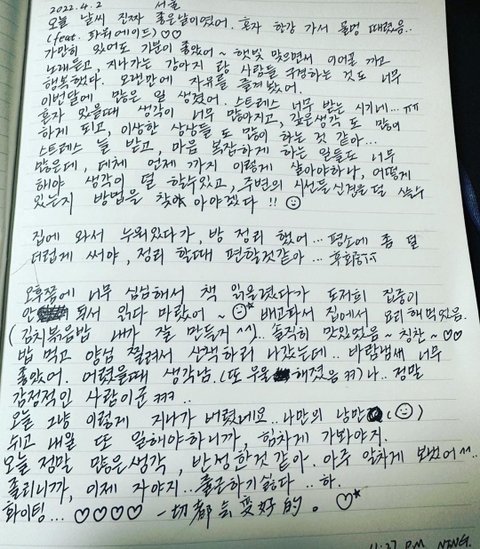 2022.4.2 서울
오늘 날씨 진짜 좋은날이였어. 혼자 한강 가서 물멍 때렸음..
(feat. 파워에이드)♡♡
가만히 있어도 기분이 좋았어~ 햇빛 맞으면서 이어폰 끼고
노래듣고, 지나가는 강아지 랑 사람들 구경하는 것도 너무
행복했다. 오랜만에 자유를 즐겨봤어.
이번달에 많은 일 생겼어. 스트레스 너무 받는 시기네…ㅠㅠ
혼자 있을때 생각이 너무 많아지고, 같은생각 도 많이
하게 되고, 이상한 상상들 도 많이 하는 것 같아…
스트레스 늘 받고, 마음 복잡하게 하는 일들도 너무
많은데, 대체 언제 까지 이렇게 살아야하나, 어떻게
해야 생각이 덜 할수있고, 주변의 시선들 신경을 덜 쓸수
있는지 방법을 찾아야겠다 !!
집에 와서 누워있다가, 방 정리 했어… 평소에 좀 덜
더럽게 써야, 정리 할때 편할것같아… 후회중
오후쯤에 너무 심심해서 책 읽을렸다가 도저히 집중이
안 되서 읽다 말았어~ 배고파서 집에서 요리해먹었음.
(김치볶음밥 내가 잘 만들거^^).. 솔직히 맛있었음~ 칭찬~♡♡
밥 먹고 양심 찔려서 산책하러 나갔는데.. 바람냄새 너무
좋았어. 어렸을때 생각남. (또 우울해졌음 ㅋㅋ) 나.. 정말
감정적인 사람이군 ㅋㅋㅋ..
오늘 그냥 이렇게 지나가 버렸네요.. 나만의 낭만
쉬고 내일 또 일해야하니까, 힘차게 가봐야지.
오늘 정말 많은생각, 반성한것 같아. 아주 알차게 보냈어^^..
졸리니까, 이제 자야지.. 출근하기싫다.. 하.
화이팅… ♡♡♡♡ 一切都会变好的。♡
11:27 P.M NING.